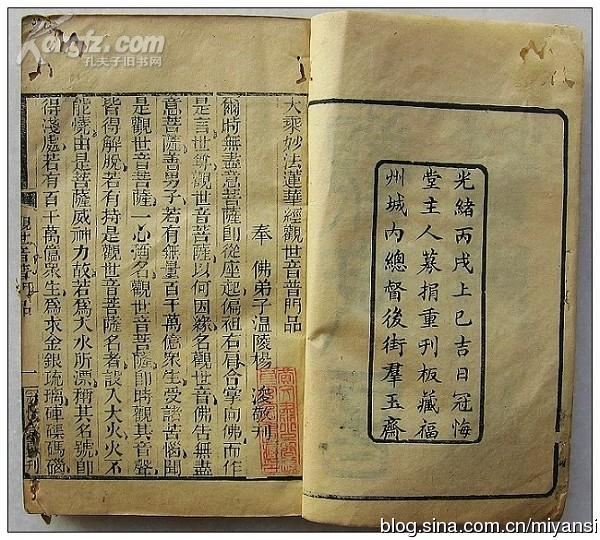 Kongfz.com
孔夫子旧书网
光緒丙戌上巳吉日冠悔
堂主人募捐重刊板藏福
州城內總督後街羣玉齋
大乘妙法蓮華經觀世音普門品
奉 佛弟子溫陵楊 浚敬刊
爾時無盡意菩薩卽從座起偏袒右肩合掌向佛而作
是言世尊觀世音菩薩以何因緣名觀世音佛告無盡
意菩薩善男子若有無量百千萬億衆生受諸苦惱聞
是觀世音菩薩一心稱名觀世音菩薩卽時觀其音聲
皆得解脫若有持是觀世音菩薩名者設入大火火不
能燒由是菩薩威神力故若爲大水所漂稱其名號卽
得淺處若有百千萬億衆生爲求金銀琉璃硨磲碼碯
觀世音普門品 一
blog.sina.com.cn/miyansi